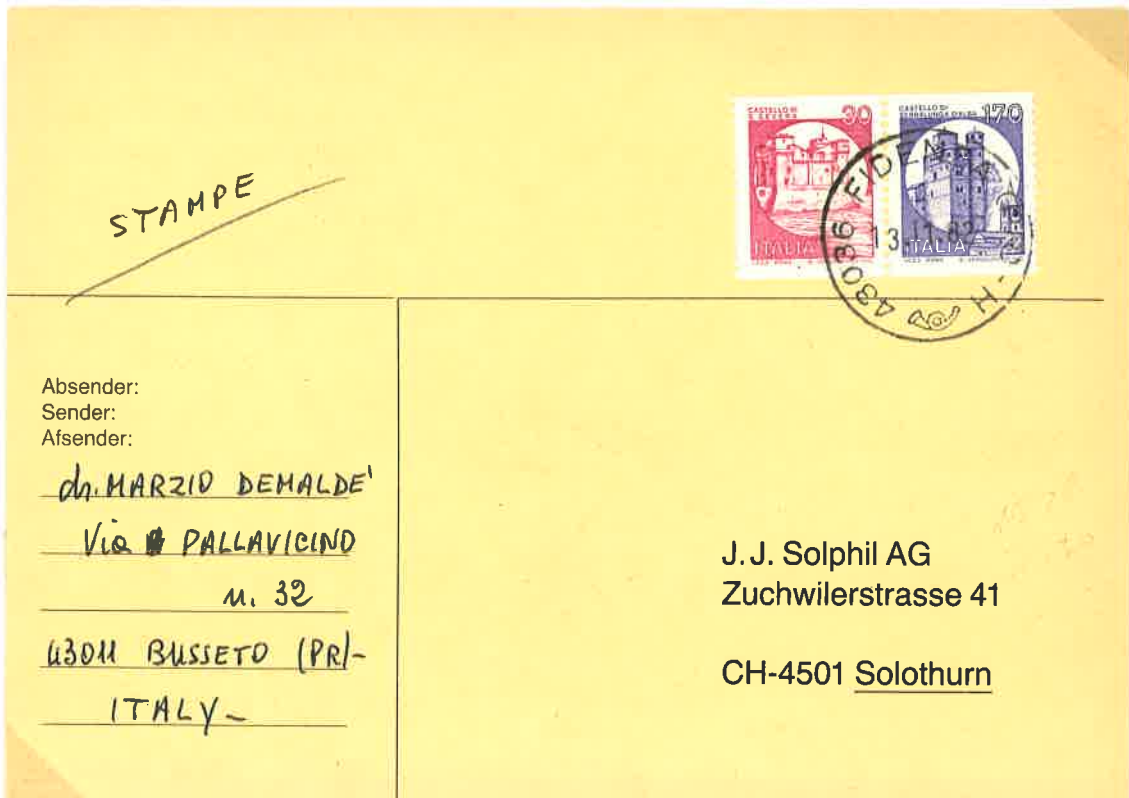 STAMPE
CASTELLO DI
S SEVERA
30
ITALIA
CASTELLO DI
SERRALUNGA D'ALBA
170
ITALIA
43036 FIDENZA
13.11.82
Absender:
Sender:
Afsender:
dr. MARZIO DEMALDE'
Via PALLAVICINO
n. 32
43011 BUSSETO (PR)-
ITALY-
J.J. Solphil AG
Zuchwilerstrasse 41
CH-4501 Solothurn